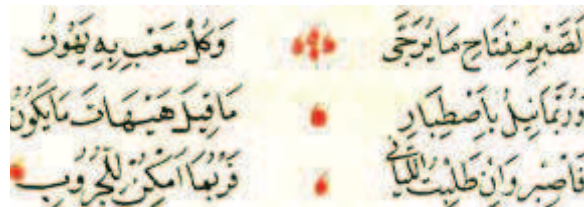 لصَّبْرِ مِفْتَاحِ مَا يُرَجَّى وَكُلُّ صَعْبٍ بِهِ يَهُونُ
وَرُبَّمَا نِيلَ بِاصْطِبَارِ مَا قِيلَ هَيْهَاتَ مَا يَكُونُ
فَاصْبِر وَانْ طَلِبْتِ اللَّيَالِي فَرُبَّمَا امْكِنُ